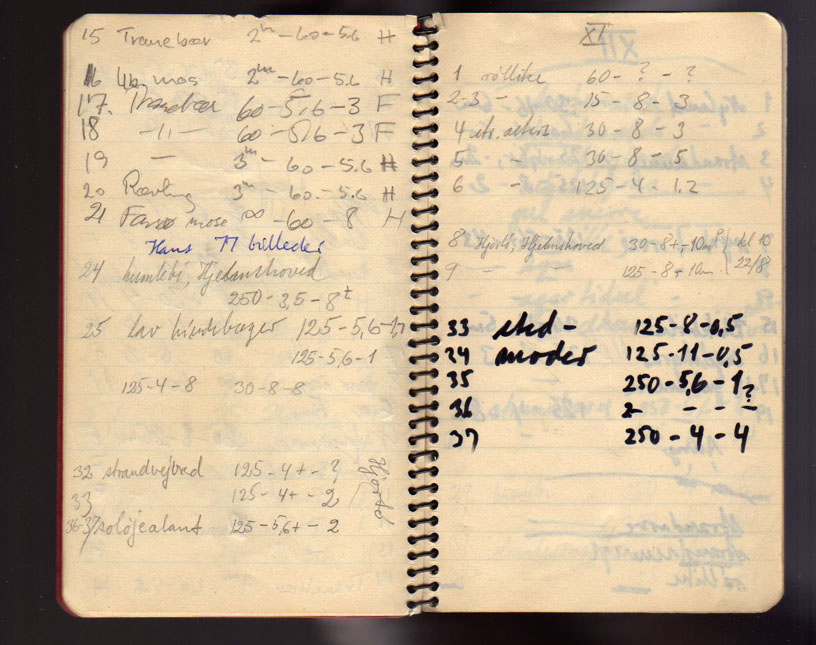 15 Tranebær 2m - 60 - 5.6 H
16 mos 2m - 60 - 5.6 H
17. Tranebær 60 - 5,6 - 3 F
18 -11- 60 - 5,6 - 3 F
19 - 3m - 60 - 5.6 H
20 Rævling 3m - 60 - 5.6 H
21 mose ∞ - 60 - 8 H
Hans 77 billeder
24 humlebi, Hjelmshoved
250 - 3,5 - 8
25 lav bæger 125 - 5,6 -
125 - 5,6 - 1
125 - 4 - 8 30 - 8 - 8
32 strandvejbred 125 - 4+ - ?
33 125 - 4+ - 2
36-37 soløjealant 125 - 5,6+ - 2
XI
1 röllike 60 - ? - ?
2-3 - 15 - 8 - 3
4 30 - 8 - 3
5 - 30 - 8 - 5
6 - 125 - 4 - 1.2
8 Hjorts, Hjelmshoved 30 - 8+ - 10m kl 10
9 - - 125 - 8+ 10m 22/8
33 sted- 125 - 8 - 0,5
34 moder 125 - 11 - 0,5
35 250 - 5,6 - 1?
36 2 - - -
37 250 - 4 - 4